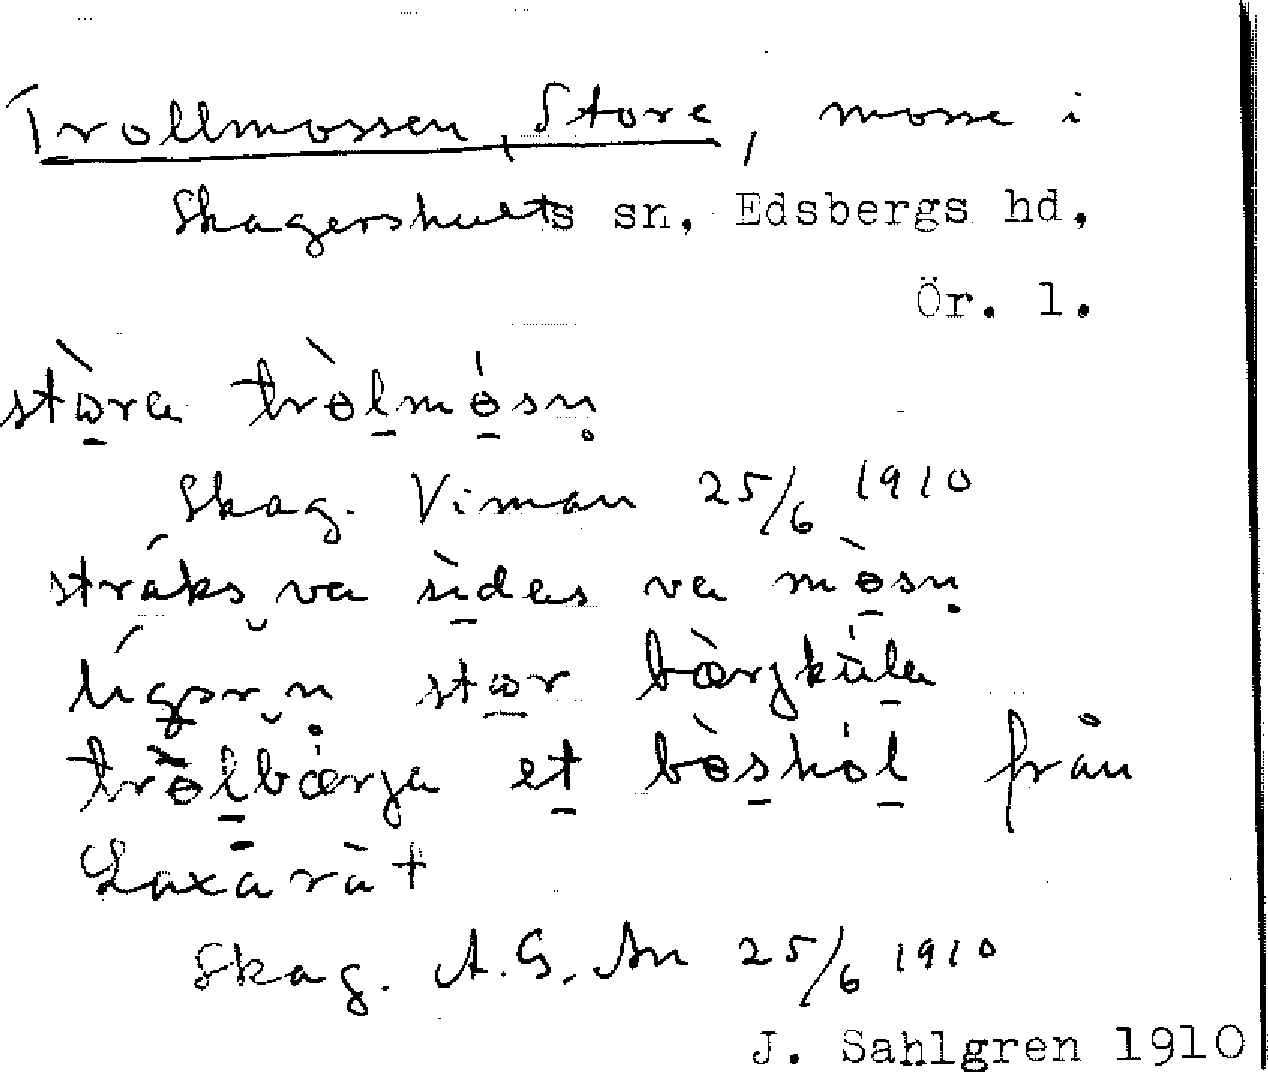 Trollmossen, Store, mosse i
Skagershults sn, Edsbergs hd,
Ör. l.
stora trolmosn
Skag. Viman 25/6 1910
stráks va sidas va mosn
stor bærgkula
trolbærja et boshol från
Laxå
Skag. A.G. An 25/6 1910
J. Sahlgren 1910